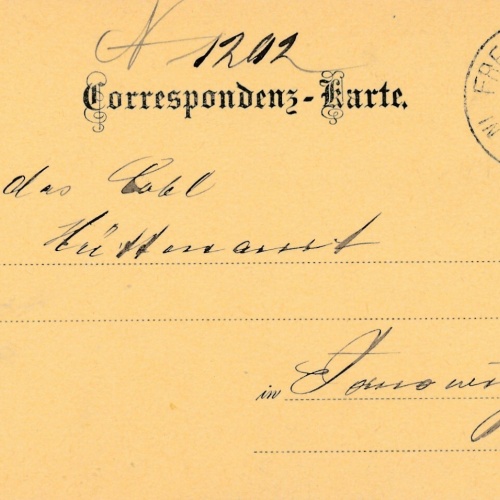 N 1292
Correspondenz-Karte.
das Löbl
Hüttenamt
in